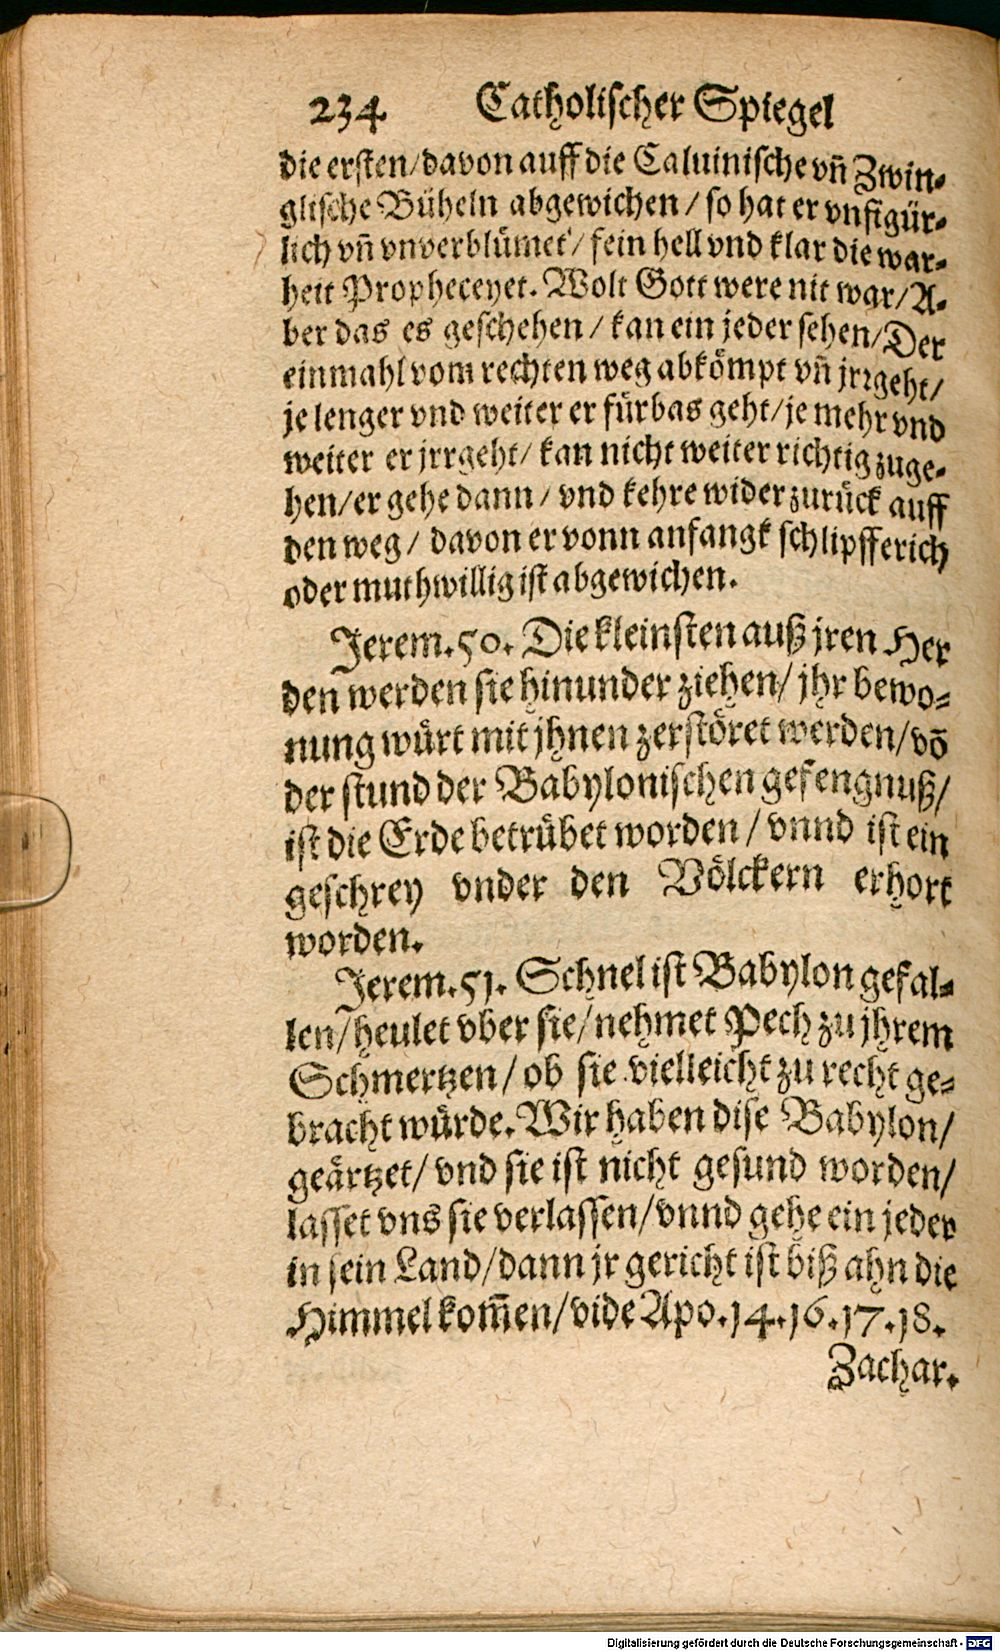 234 Catholischer Spiegel
die ersten/davon auff die Caluinische vñ Zwin-
glische Büheln abgewichen/so hat er vnfigür-
lich vñ vnverblümet/fein hell vnd klar die war-
heit Propheceyet. Wolt Gott were nit war/A-
ber das es geschehen/kan ein jeder sehen/Der
einmahl vom rechten weg abkömpt vñ jrrgeht/
je lenger vnd weiter er fürbas geht/je mehr vnd
weiter er jrrgeht/kan nicht weiter richtig zuge-
hen/er gehe dann/vnd kehre wider zurück auff
den weg/davon er vonn anfangk schlipfferich
oder muthwillig ist abgewichen.
Jerem.50. Die kleinsten auß jren Her
den werden sie hinunder ziehen/jhr bewo-
nung würt mit jhnen zerstöret werden/võ
der stund der Babylonischen gefengnuß/
ist die Erde betrübet worden/vnnd ist ein
geschrey vnder den Völckern erhort
worden.
Jerem.51. Schnel ist Babylon gefal-
len/heulet vber sie/nehmet Pech zu jhrem
Schmertzen/ob sie vielleicht zu recht ge-
bracht würde. Wir haben dise Babylon/
geärtzet/vnd sie ist nicht gesund worden/
lasset vns sie verlassen/vnnd gehe ein jeder
in sein Land/dann jr gericht ist biß ahn die
Himmel kom̃en/vide Apo.14.16.17.18.
Zachar.
Digitalisierung gefördert durch die Deutsche Forschungsgemeinschaft - DFG